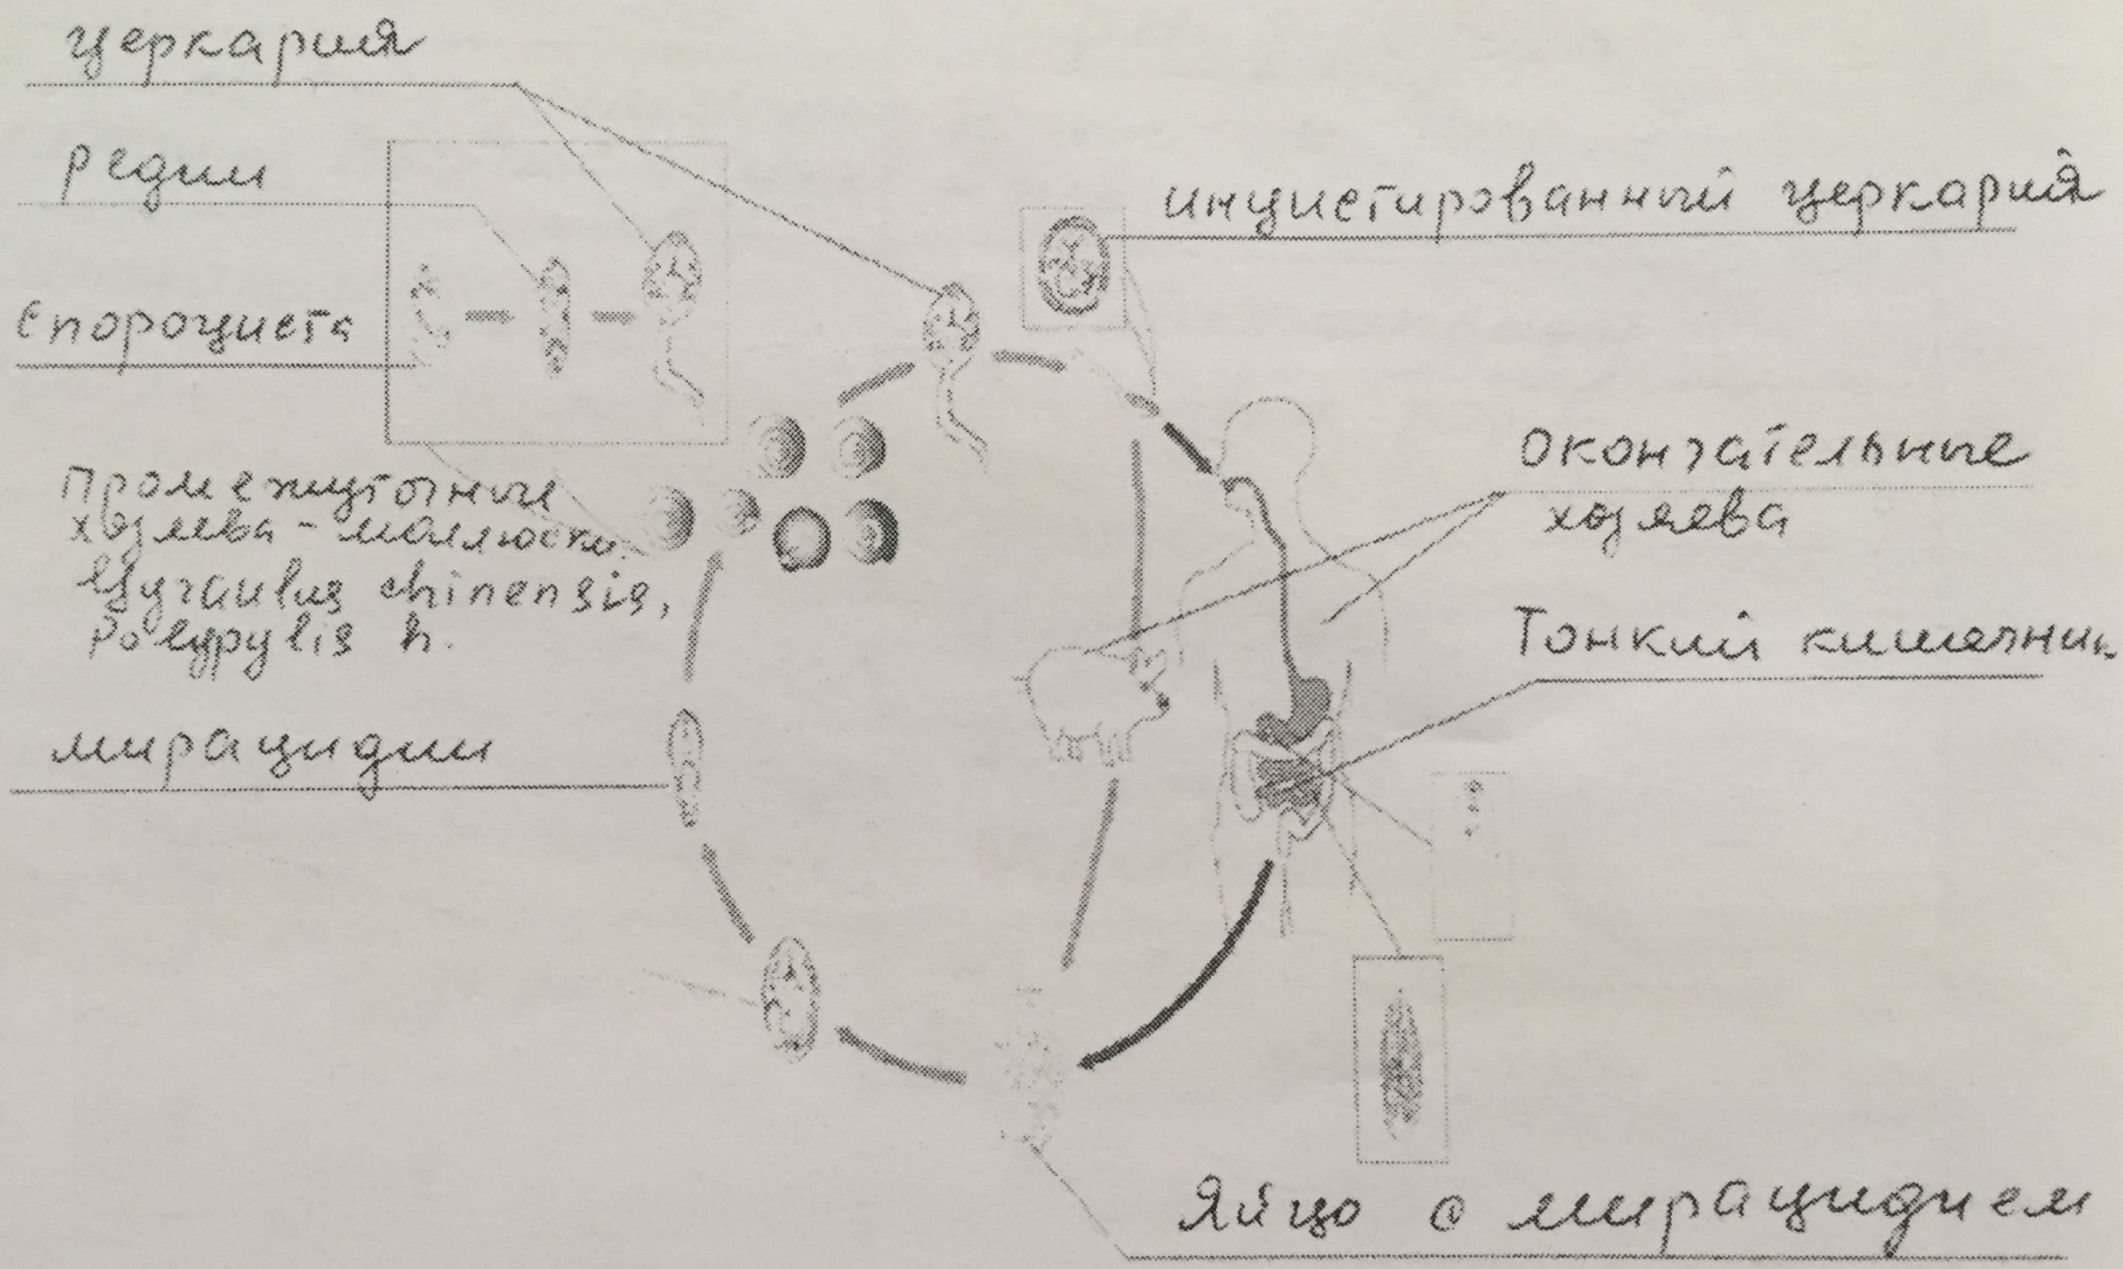 церкария
редии
спороциста
Промежуточные
хозяева - моллюски
chinensis,
Polypylis h.
мирацидии
инцистированный церкария
окончательные
хозяева
Тонкий кишечник
Яйцо с мирацидием